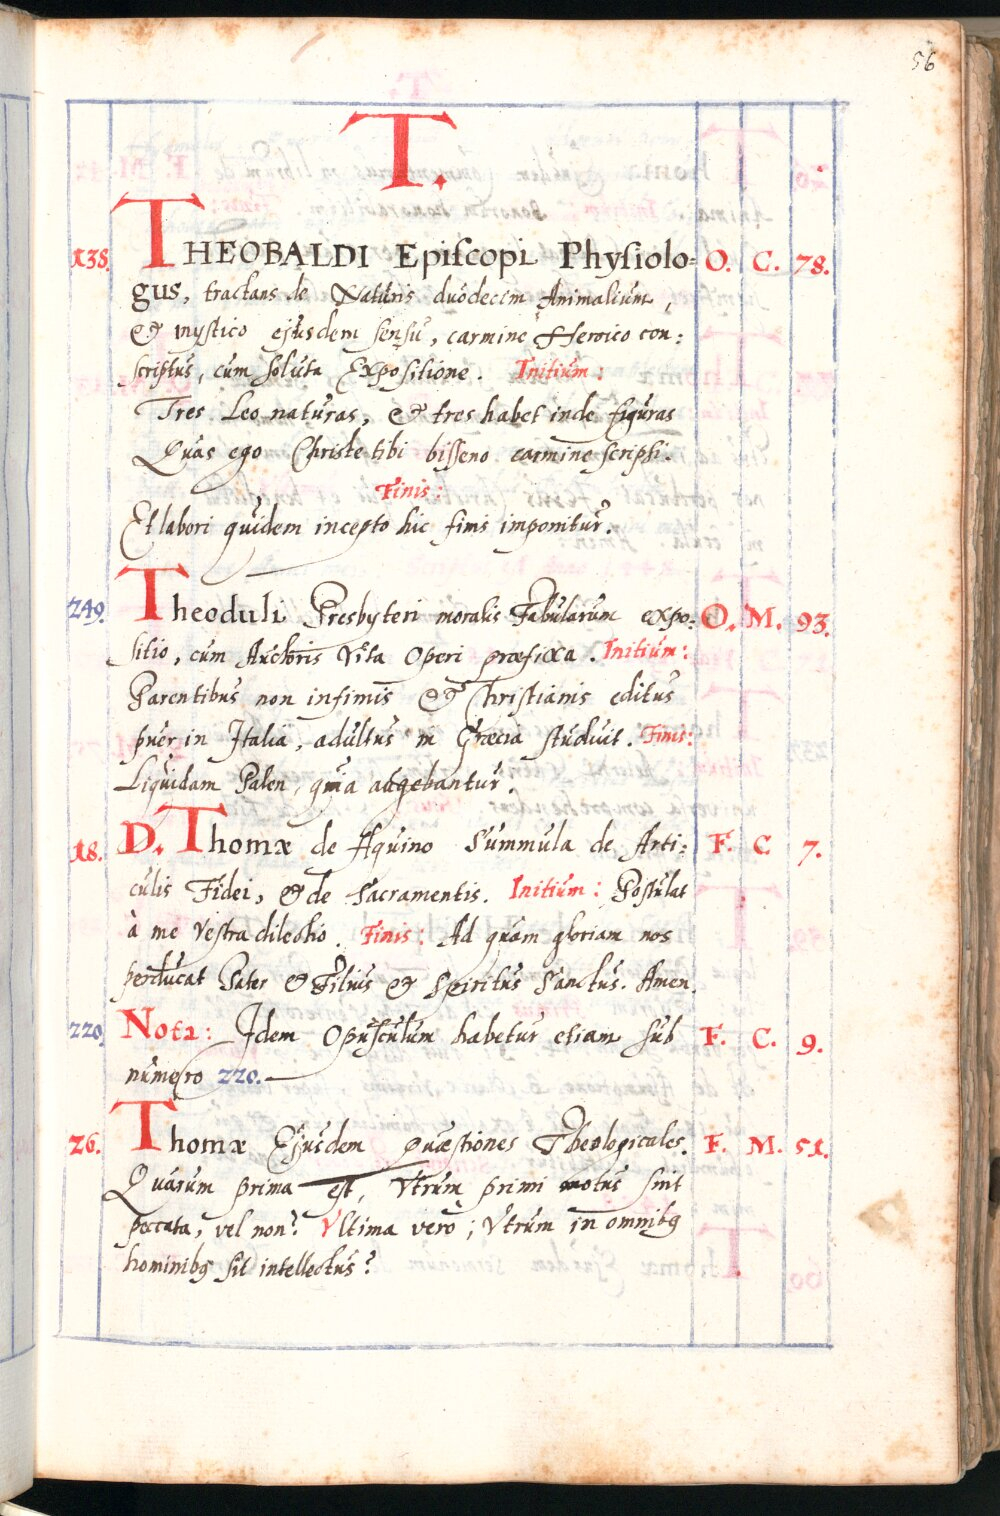 56
T.
138. THEOBALDI Epiſcopi Phyſiolo= O. C. 78.
gus, tractans de Naturis duodecim Animalium,
& mystico ejusdem sensu, carmine Heroico con:
scriptus, cum soluta Expositione. Initium:
Tres Leo naturas, & tres habet inde figuras
Quas ego Christe tibi bisseno carmine scripsi.
Finis:
Et labori quidem incepto hic finis imponitur.
249. Theoduli Presbyteri moralis Fabularum expo: O. M. 93.
sitio, cum Auctoris Vita Operi præfixa. Initium:
Parentibus non infimis & Christianis editus
puer in Italia, adultus in Græcia studuit. Finis:
Liquidam Palen, quia augebantur.
18. D. Thomæ de Aquino Summula de Arti: F. C. 7.
culis Fidei, & de Sacramentis. Initium: Postulat
à me Vestra dilectio. Finis: Ad quam gloriam nos
perducat Pater & Filius & Spiritus Sanctus. Amen.
220. Nota: Idem Opusculum habetur etiam sub F. C. 9.
numero 220.
26. Thomæ Ejusdem Quæstiones Theologicales. F. M. 51.
Quarum prima est, Vtrum primi motus sint
peccata, vel non? Vltima vero; Vtrum in omnibꝰ
hominibꝰ sit intellectus?